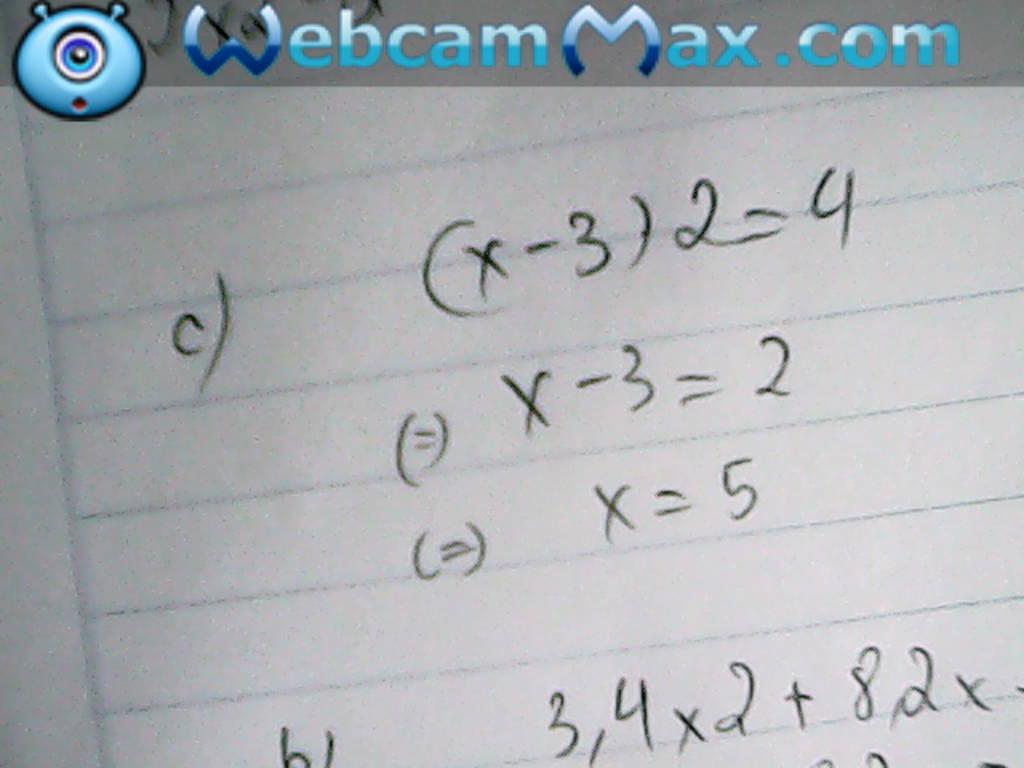 WebcamMax.com
c) (x-3)2=4
(=) x-3=2
(=) x=5
b) 3,4x2+8,2x-